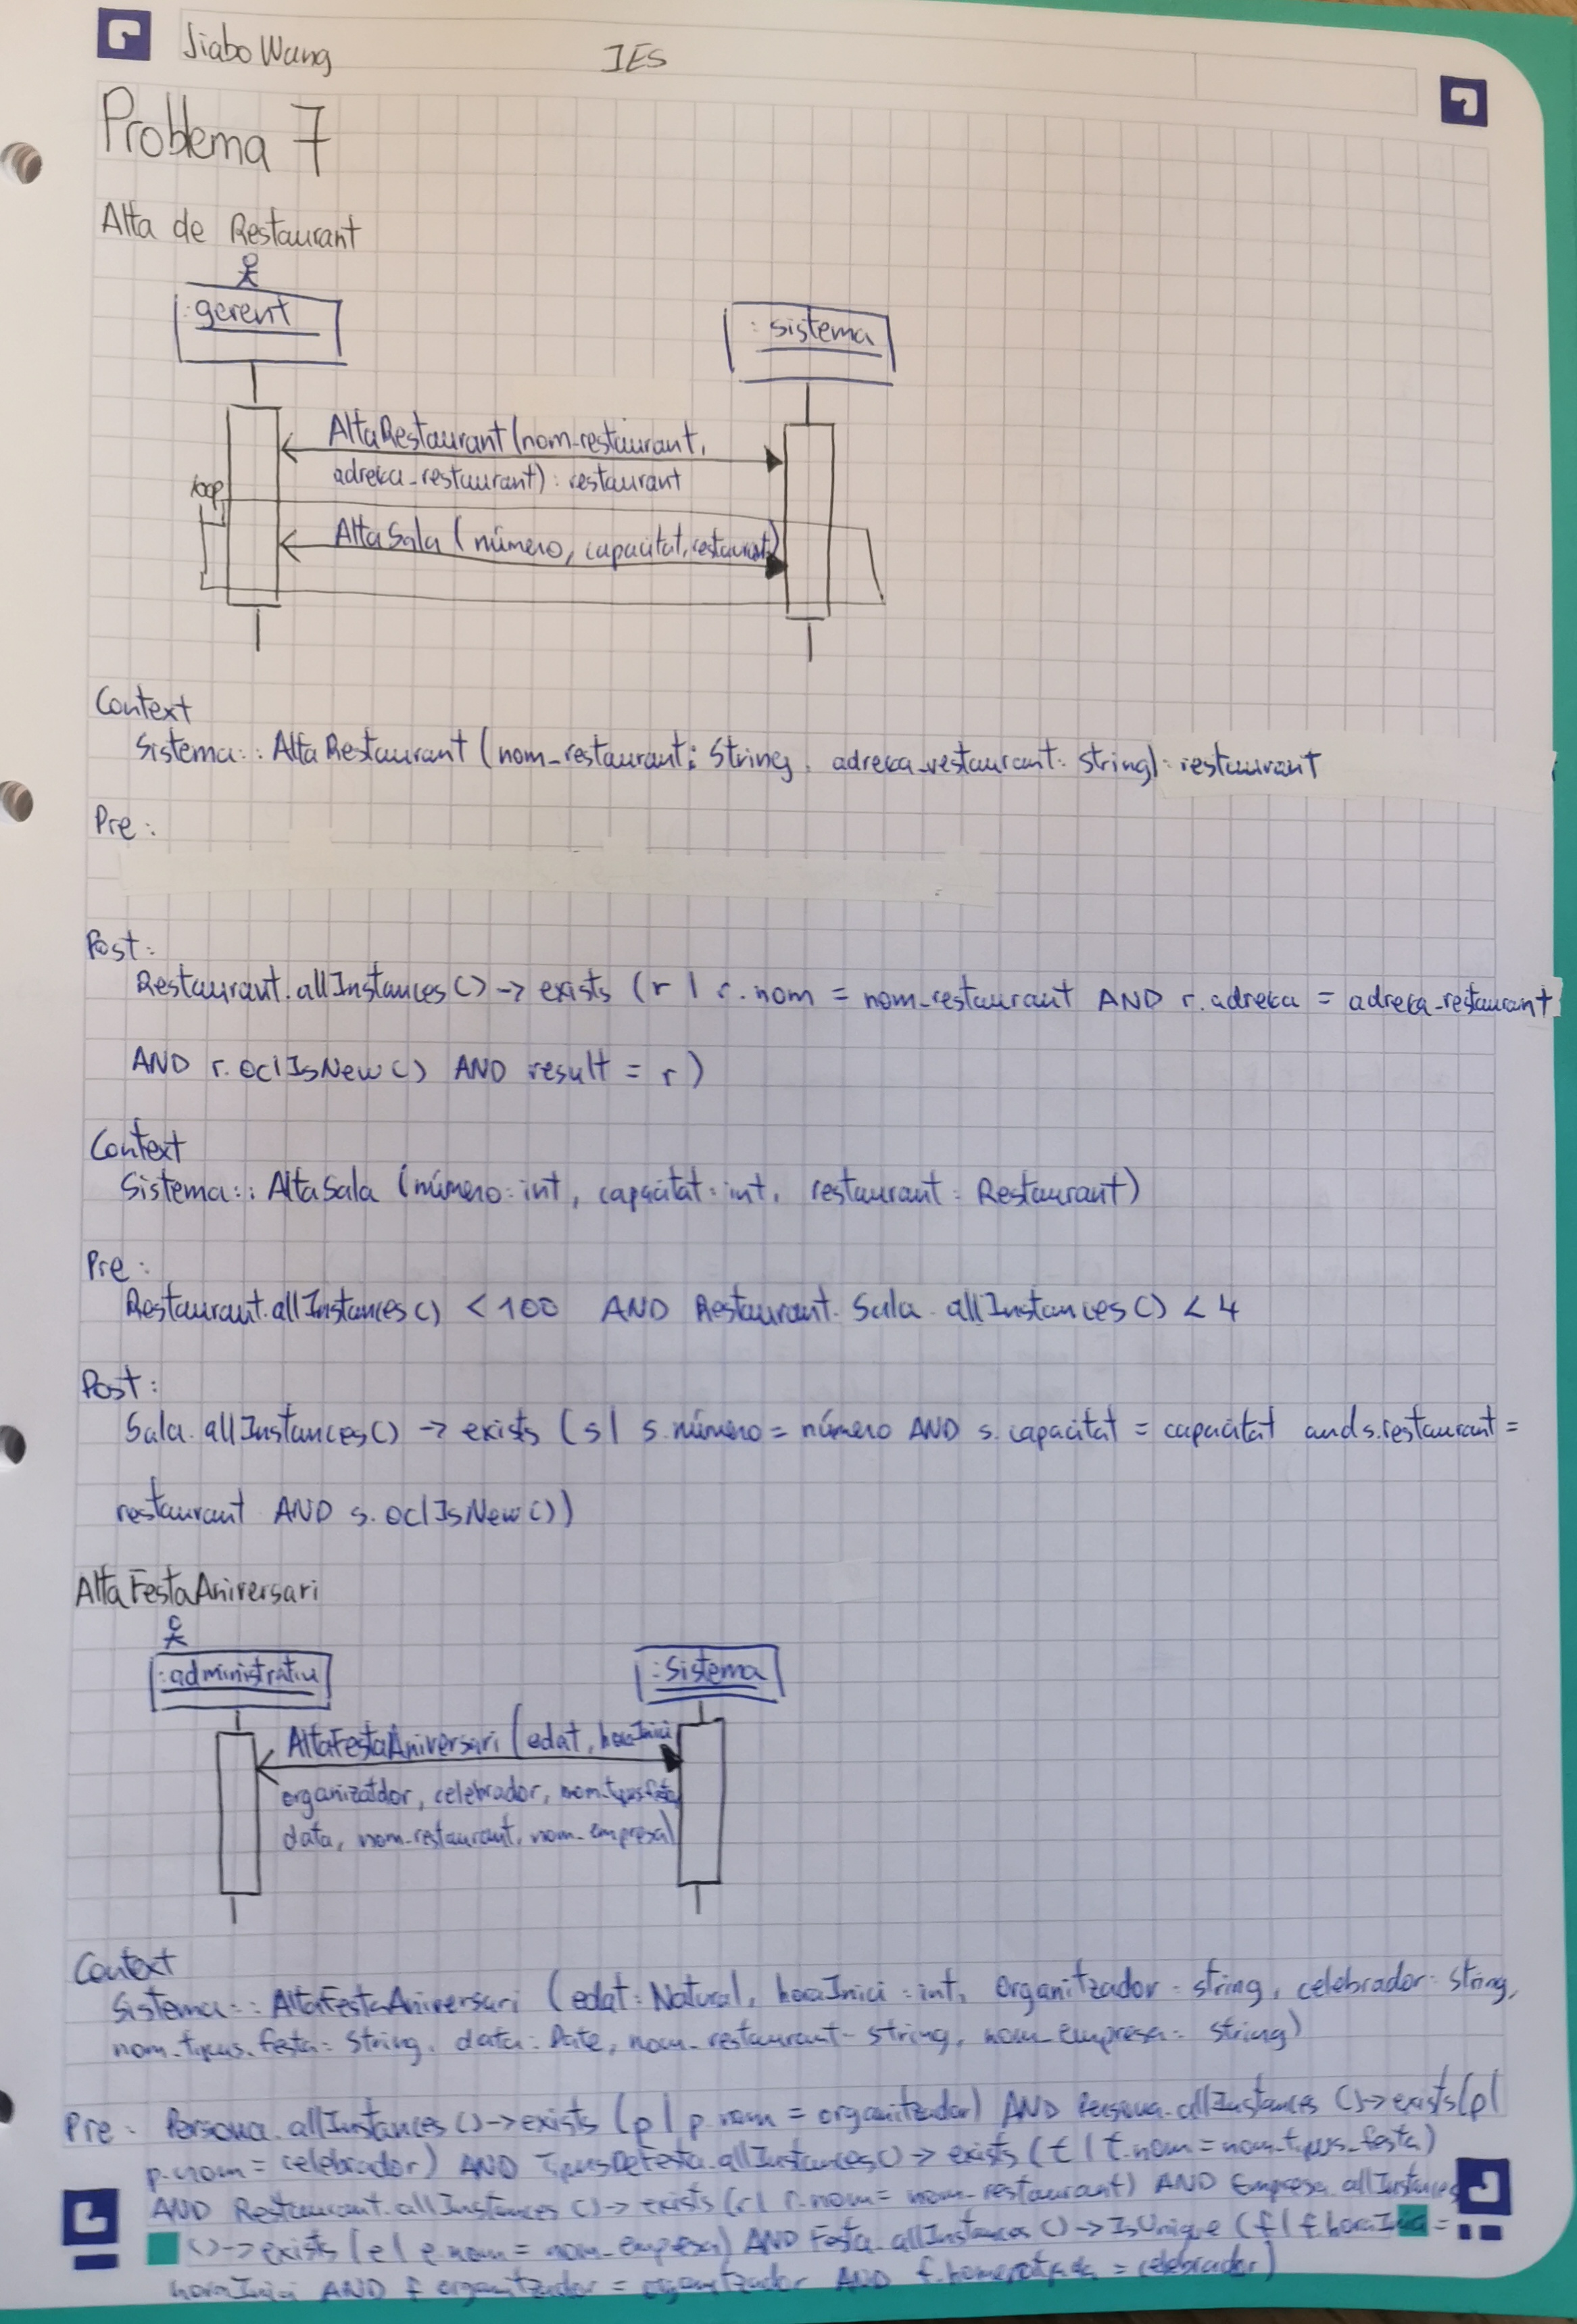 Jiabo Wang IES
Problema 7
Alta de Restaurant
: gerent
: sistema
AltaRestaurant (nom_restaurant,
adreça_restaurant) : restaurant
loop
AltaSala (número, capacitat, restaurant)
Context
Sistema:: AltaRestaurant (nom_restaurant: String, adreça_restaurant: string): restaurant
Pre:
Post:
Restaurant.allInstances() -> exists (r | r.nom = nom_restaurant AND r.adreça = adreça_restaurant
AND r.oclIsNew() AND result = r)
Context
Sistema:: AltaSala (número: int, capacitat: int, restaurant: Restaurant)
Pre:
Restaurant.allInstances() < 100 AND Restaurant.Sala.allInstances() < 4
Post:
Sala.allInstances() -> exists (s | s.número = número AND s.capacitat = capacitat and s.restaurant =
restaurant AND s.oclIsNew())
AltaFestaAniversari
: administratiu
: Sistema
AltaFestaAniversari (edat, horaInici
organizatdor, celebrador, nom_tipus_festa,
data, nom_restaurant, nom_empresa)
Context
Sistema:: AltaFestaAniversari (edat: Natural, horaInici: int, Organitzador: string, celebrador: String,
nom_tipus_festa: String, data: Date, nom_restaurant- string, nom_empresa: string)
Pre: Persona.allInstances() -> exists (p | p.nom = organitzador) AND Persona.allInstances() -> exists (p |
p.nom = celebrador) AND TipusDeFesta.allInstances() -> exists (t | t.nom = nom_tipus_festa)
AND Restaurant.allInstances() -> exists (r | r.nom = nom_restaurant) AND Empresa.allInstances
() -> exists (e | e.nom = nom_empresa) AND Festa.allInstances() -> IsUnique (f | f.horaInici =
horaInici AND f.organitzador = organitzador AND = celebrador)